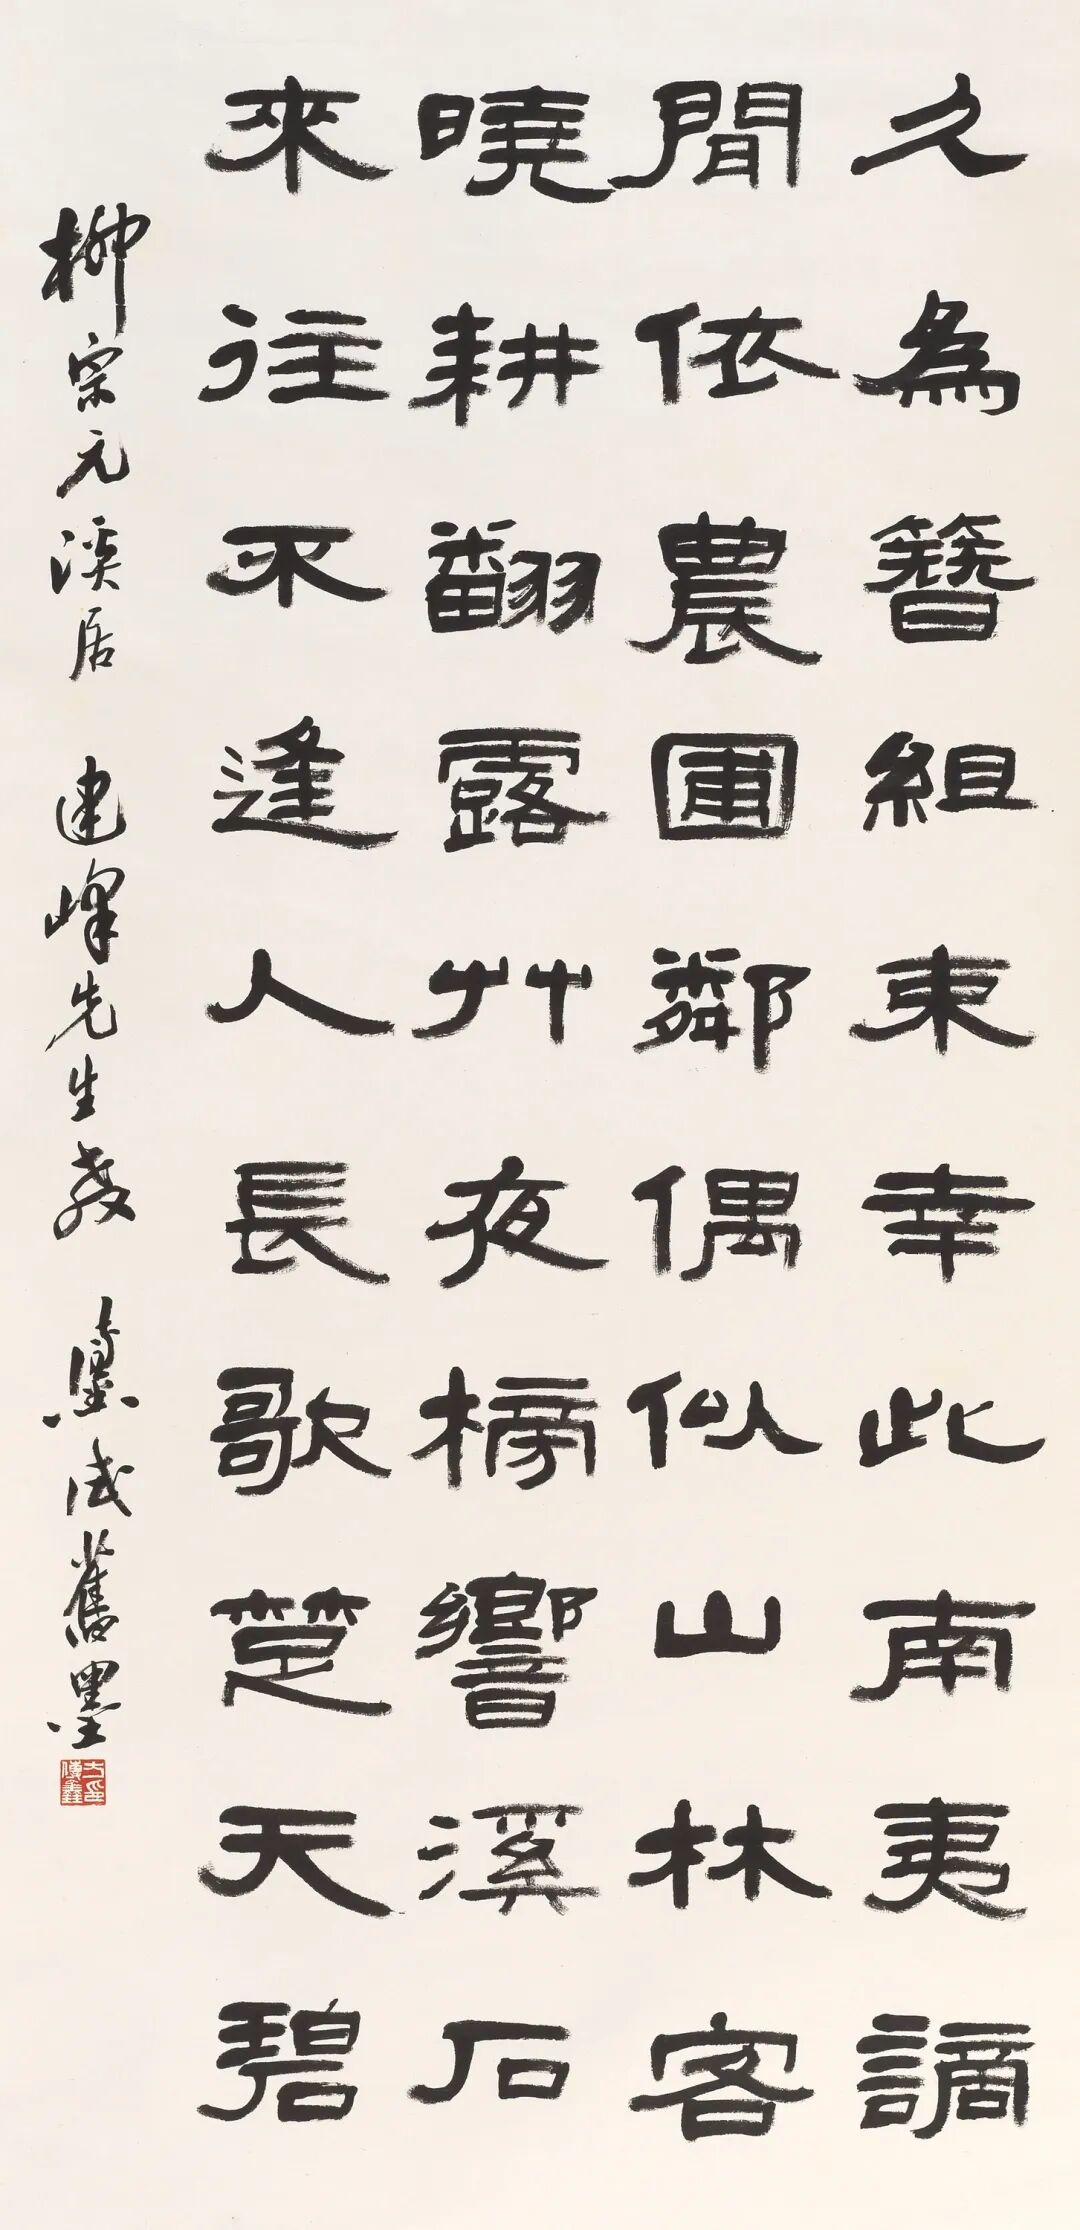 久為簪組束幸此南夷謫
閒依農圃鄰偶似山林客
曉耕翻露艸夜榜響溪石
來往不逢人長歌楚天碧
柳宗元溪居 建峰先生教 熹成舊墨